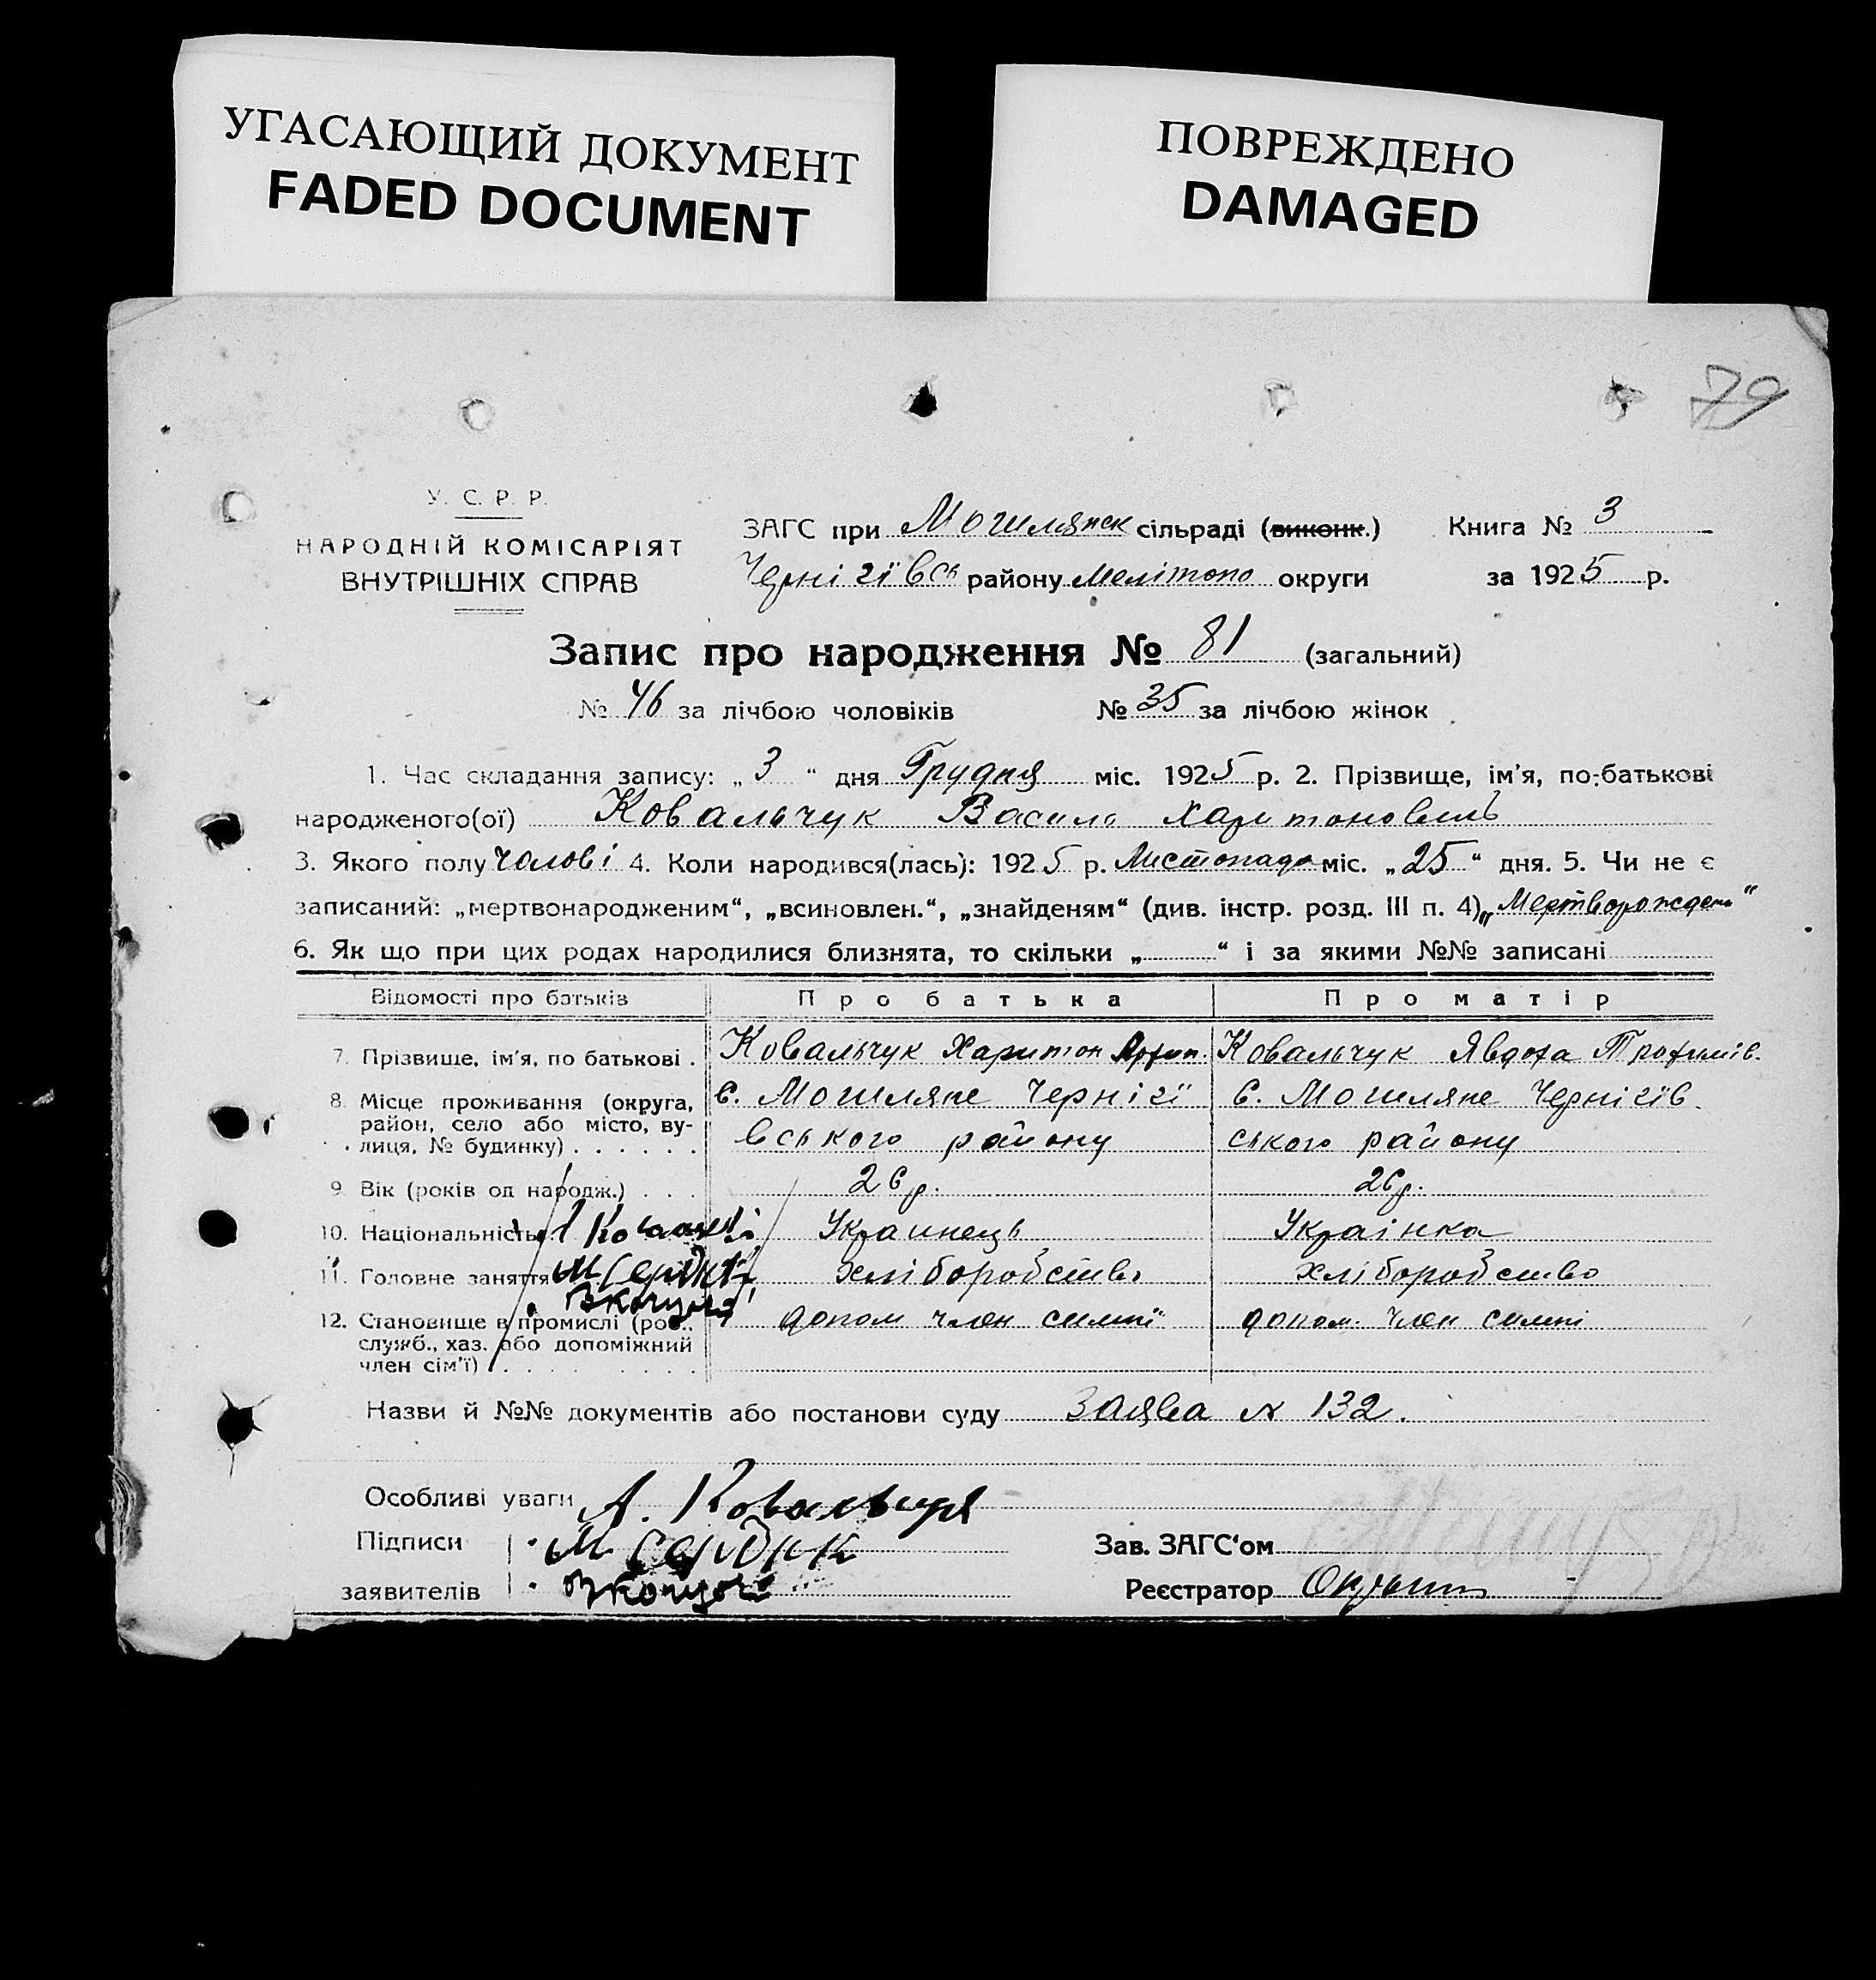 УГАСАЮЩИЙ ДОКУМЕНТ
FADED DOCUMENT
ПОВРЕЖДЕНО
DAMAGED
79
У. С. Р. Р.
НАРОДНІЙ КОМІСАРІЯТ
ВНУТРІШНІХ СПРАВ
ЗАГС при Могилянск сільраді (виконк.) Книга № 3
Чернігївсь району Мелітопо округи за 1925 р.
Запис про народження № 81 (загальний)
№ 46 за лічбою чоловіків № 35 за лічбою жінок
1. Час складання запису: „3“ дня Грудня міс. 1925 р. 2. Прізвище, ім'я, по-батькові
народженого(ої) Ковальчук Василь Харитоновичь
3. Якого полу чолові 4. Коли народився(лась): 1925 р. Листопада міс. „25“ дня. 5. Чи не є
записаний: „мертвонародженим“, „всиновлен.“, „знайденям“ (див. інстр. розд. III п. 4) „Мертворожден“
6. Як що при цих родах народилися близнята, то скільки „ “ і за якими №№ записані
Відомості про батьків Про батька Про матір
7. Прізвище, ім'я, по батькові . Ковальчук Харитон Ковальчук Явдоха Трохиміе.
8. Місце проживання (округа, с. Могиляне Чернігї с. Могиляне Чернігїв
район, село або місто, ву- вського району ського району
лиця, № будинку) . . . . . .
9. Вік (років од народж.) . . . 26 р. 26 р.
10. Національність Украинець Українка
11. Головне заняття хліборобство хліборобство
12. Становище в промислі (роб., допом член симпї допом. член симпі
служб., хаз. або допоміжний
член сім'ї) . . . . . . . .
Назви й №№ документів або постанови суду Заява № 132.
Особливі уваги А.
Підписи М Сердюк
Зав. ЗАГС'ом
заявителів
Реєстратор